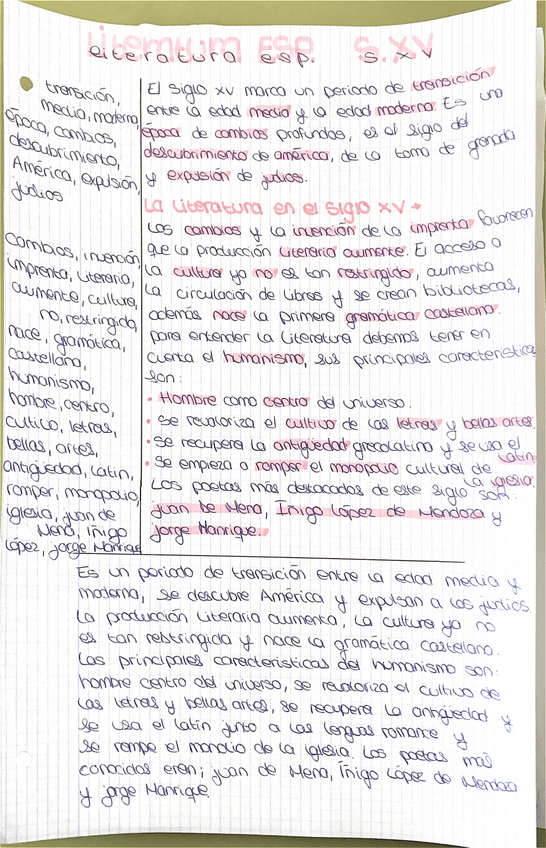 Literatura ESP. S.XV
literatura esp. S. XV
transición,
media, moderna,
época, cambios,
descubrimiento,
América, expulsión,
judíos
El siglo XV marca un periodo de transición
entre la edad media y la edad moderna. Es una
época de cambios profundos, es el siglo del
descubrimiento de américa, de la toma de granada
y expulsión de judíos.
La literatura en el siglo XV →
Cambios, invención,
imprenta, literaria,
aumente, cultura,
no, restringida,
nace, gramática,
castellano,
humanismo,
hombre, centro,
cultivo, letras,
bellas, artes,
antigüedad, latín,
romper, monopolio,
iglesia, juan de
Mena, iñigo
lópez, jorge Manrique
Los cambios y la invención de la imprenta favorecen
que la producción literaria aumente. El acceso a
la cultura ya no es tan restringido, aumenta
la circulación de libros y se crean bibliotecas,
además nace la primera gramática castellana.
para entender la literatura debemos tener en
cuenta el humanismo, sus principales caracteristica
son:
• Hombre como centro del universo.
• Se revaloriza el cultivo de las letras y bellas artes.
• Se recupera la antigüedad grecolatina y se usa el latín
• Se empieza a romper el monopolio cultural de la iglesia.
Los poetas más destacados de este siglo son:
juan de Mena, Íñigo López de Mendoza y
jorge Manrique.
Es un periodo de transición entre la edad media y
moderna, se descubre América y expulsan a los judíos
La producción literaria aumenta, la cultura ya no
es tan rebstringida y nace la gramática castellana.
Las principales características del humanismo son:
hombre centro del universo, se revaloriza el cultivo de
las letras y bellas artes, se recupera la antigüedad y
se usa el latín junto a las lenguas romance y
se rompe el de la iglesia. Los poetas más
conocidos eren; juan de Mena, Íñigo López de Mendoza
y jorge Manrique.